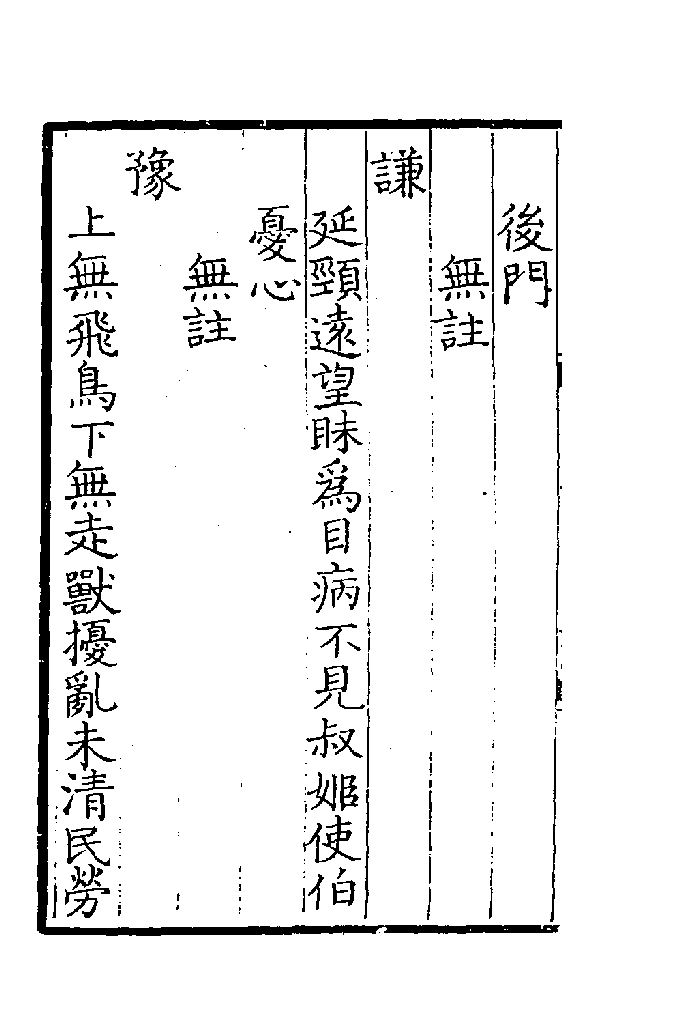 後門
無註
謙
延頸遠望眛為目病不見叔姬使伯
憂心
無註
豫
上無飛鳥下無走獸擾亂未清民勞